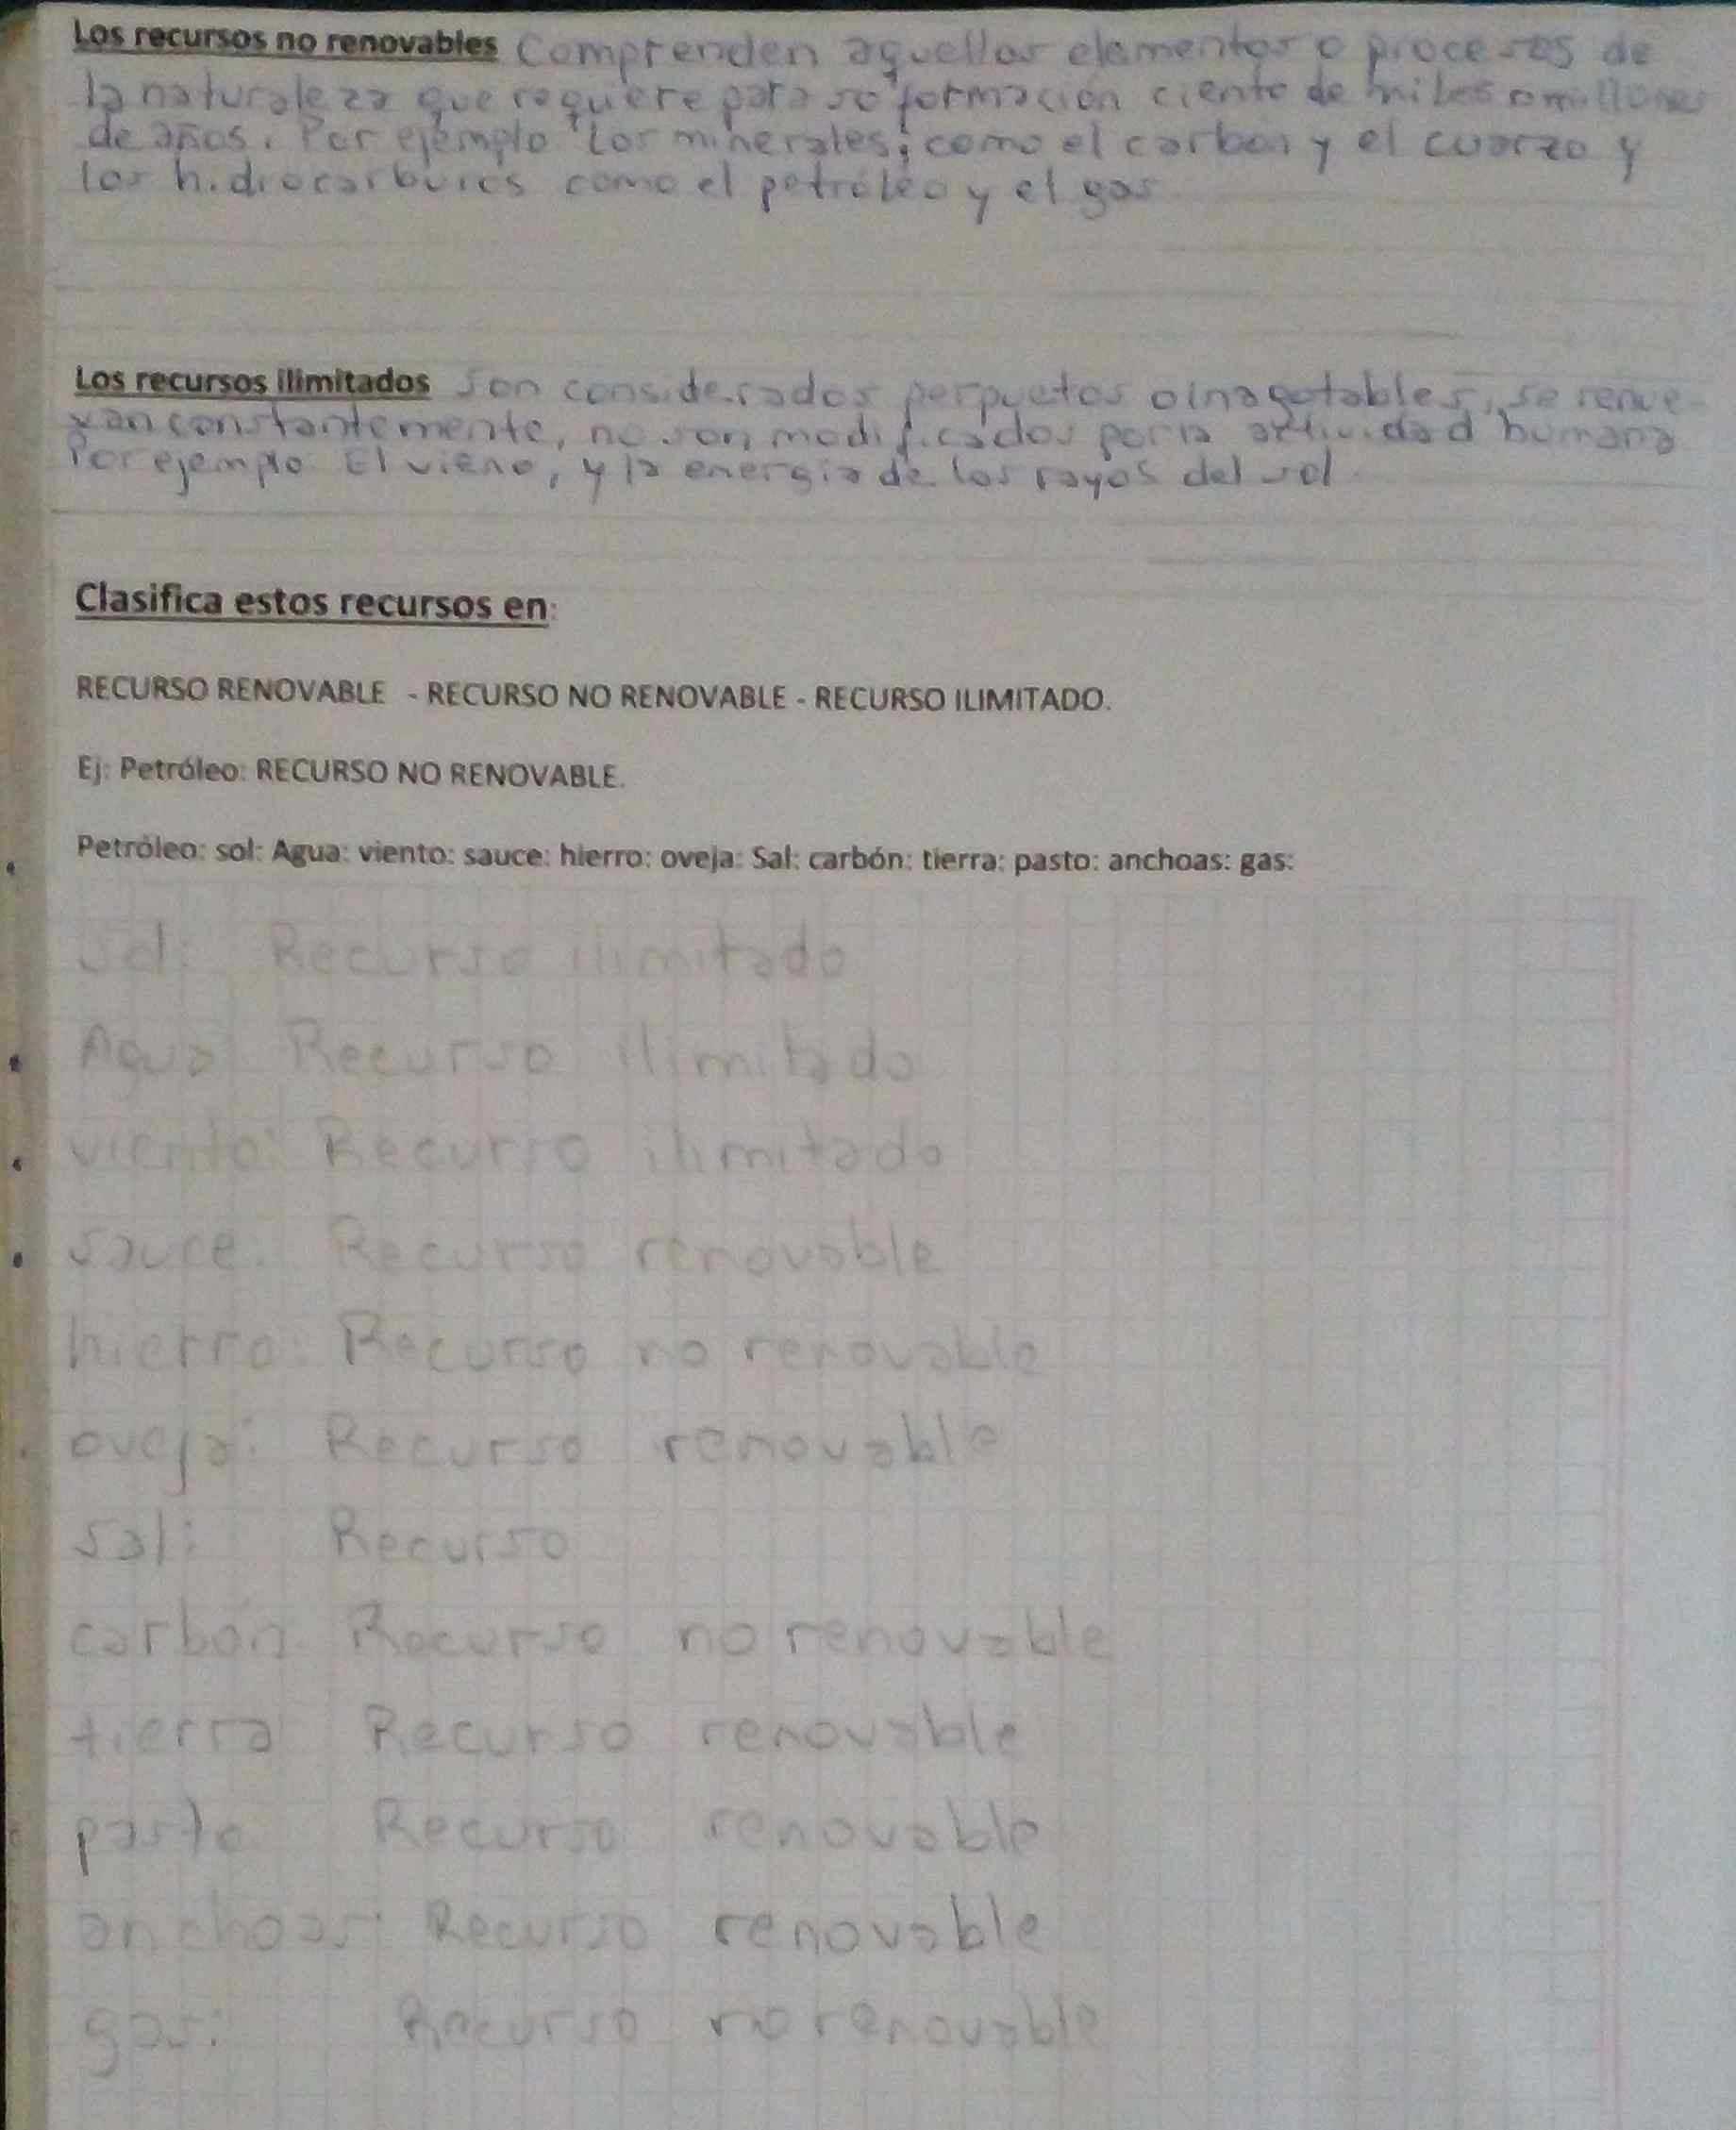 Los recursos no renovables Comprenden aquellos elementos o procesos de
la naturaleza que requiere para su formación ciento de miles o millones
de años. Por ejemplo: Los minerales; como el carbon y el cuarzo y
los hidrocarburos como el petróleo y el gas
Los recursos ilimitados Son considerados perpuetos o inagotables, se renue-
van constantemente, no son modificados por la actividad humana
Por ejemplo El vieno, y la energía de los rayos del sol.
Clasifica estos recursos en:
RECURSO RENOVABLE - RECURSO NO RENOVABLE - RECURSO ILIMITADO.
Ej: Petróleo: RECURSO NO RENOVABLE.
Petróleo: sol: Agua: viento: sauce: hierro: oveja: Sal: carbón: tierra: pasto: anchoas: gas:
Sol: Recurso ilimitado
Agua Recurso ilimitado
viento: Recurso ilimitado
sauce: Recurso renovable
hierro: Recurso no renovable
oveja: Recurso renovable
sal: Recurso
carbón: Recurso no renovable
tierra Recurso renovable
pasto Recurso renovable
anchoas: Recurso renovable
gas: Recurso no renovable